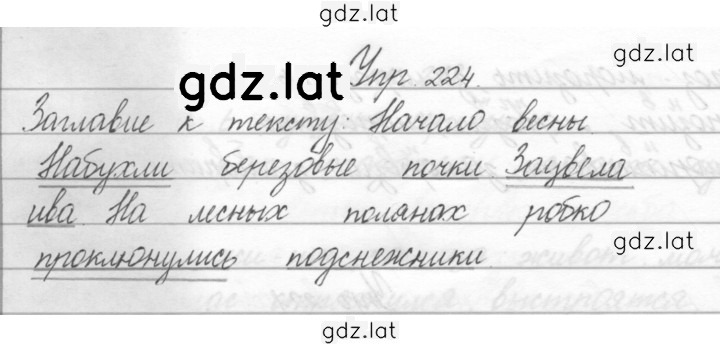 gdz.lat
gdz.lat
gdz.lat Упр. 224.
Заглавие к тексту: Начало весны.
Набухли березовые почки. Зацвела
ива. На лесных полянах робко
gdz.lat
проклюнулись подснежники.
gdz.lat